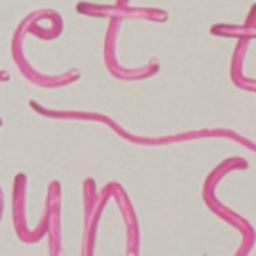 et t
un s